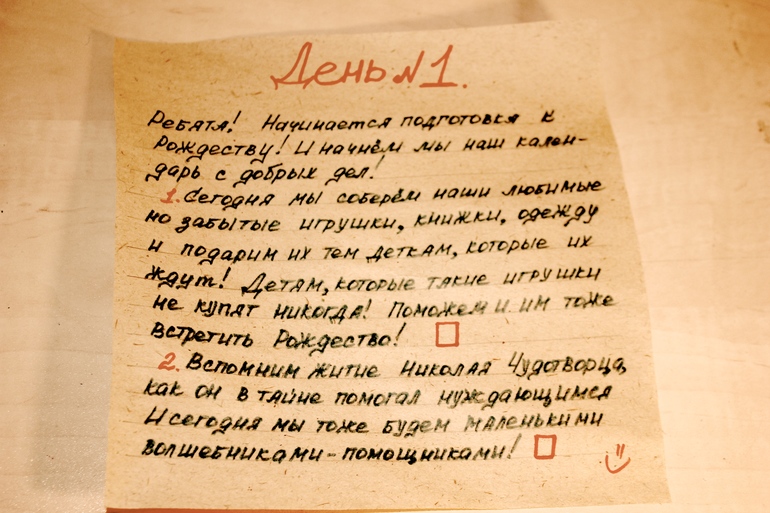 День №1.
Ребята! Начинается подготовка к
Рождеству! И начнём мы наш кален-
дарь с добрых дел!
1. Сегодня мы соберём наши любимые
но забытые игрушки, книжки, одежду
и подарим их тем деткам, которые их
ждут! Детям, которые такие игрушки
не купят никогда! Поможем и им тоже
встретить Рождество!
2. Вспомним житие Николая Чудотворца,
как он в тайне помогал нуждающимся
И сегодня мы тоже будем маленькими
волшебниками-помощниками!